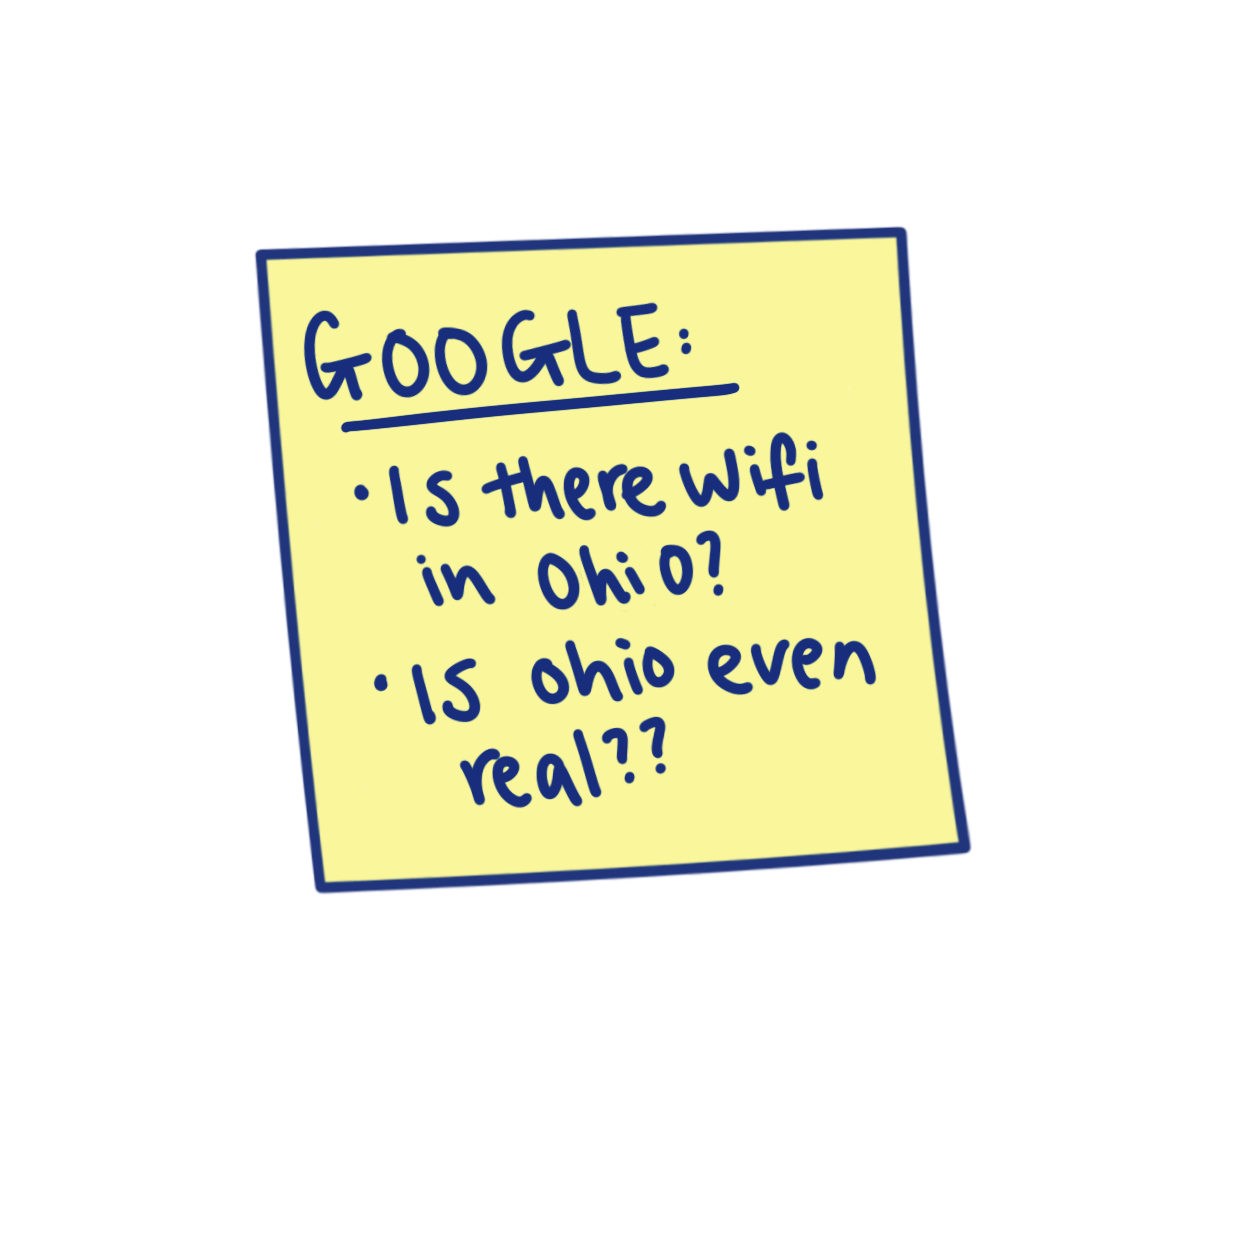 GOOGLE:
• Is there wifi
in Ohio?
• Is ohio even
real??